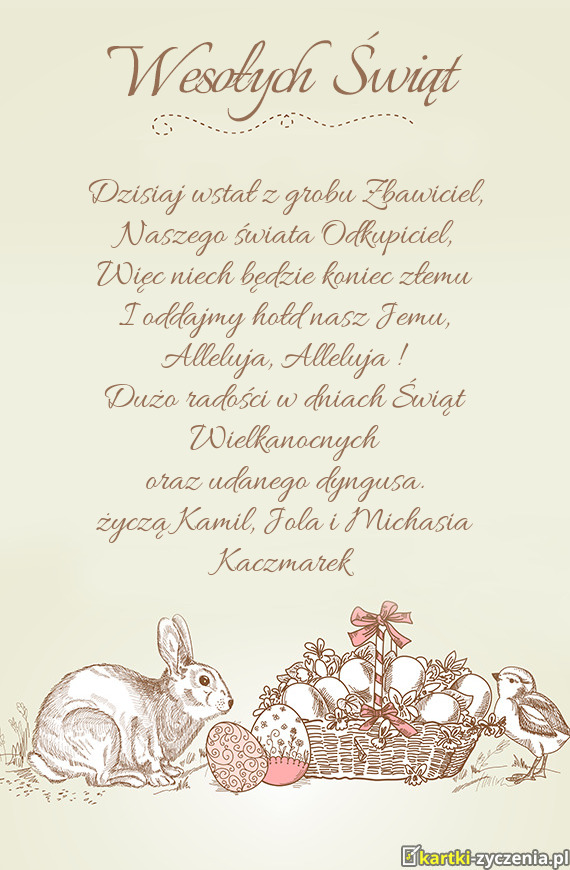 Wesołych Świąt
Dzisiaj wstał z grobu Zbawiciel,
Naszego świata Odkupiciel,
Więc niech będzie koniec złemu
I oddajmy hołd nasz Jemu,
Alleluja, Alleluja !
Dużo radości w dniach Świąt
Wielkanocnych
oraz udanego dyngusa.
życzą Kamil, Jola i Michasia
Kaczmarek
kartki-zyczenia.pl